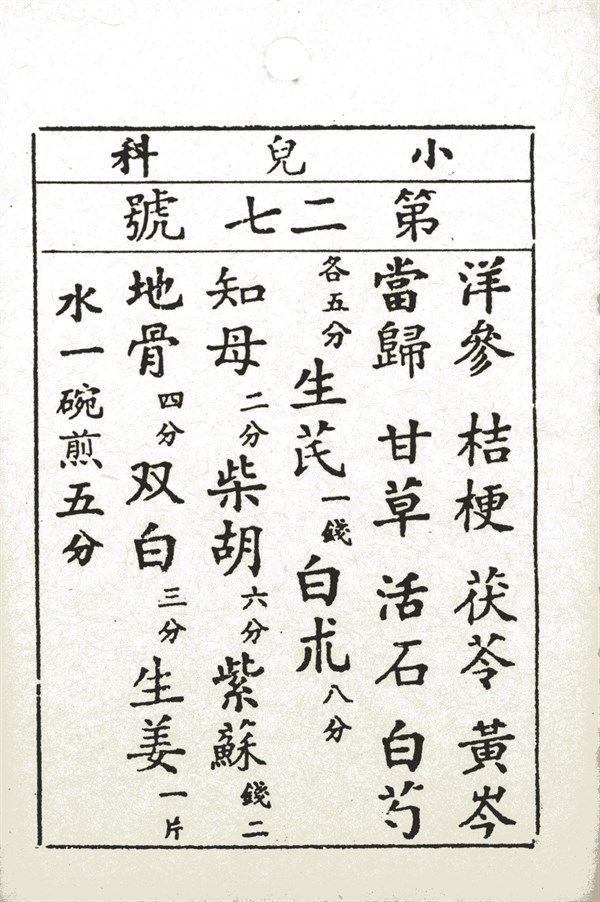 小兒科
第二七號
洋參 桔梗 茯苓 黃岑
當歸 甘草 活石 白芍
各五分 生芪一錢 白朮八分
知母二分 柴胡六分 紫蘇錢二
地骨四分 双白三分 生姜一片
水一碗煎五分